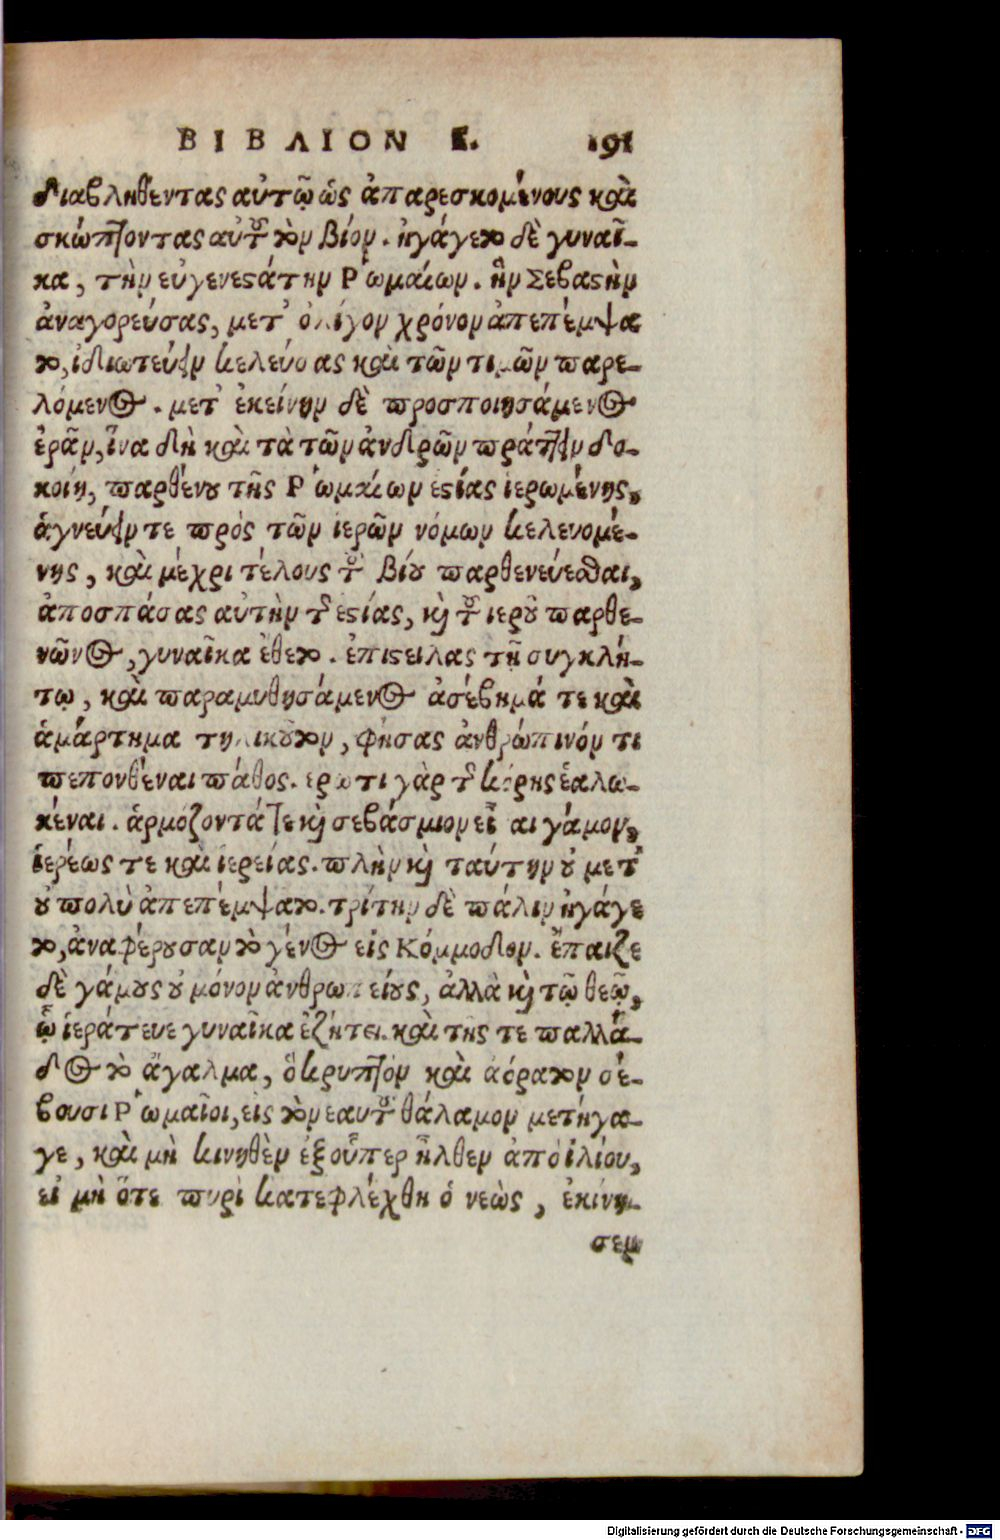 ΒΙΒΛΙΟΝ Ε. 191
διαβληθέντας αὐτῷ ὡς ἀπαρεσκομένους καὶ
σκώπτοντας αὐτοῦ τὸν βίον. ἠγάγετο δὲ γυναῖ-
κα, τὴν εὐγενεϛάτην Ῥωμαίων. ἣν Σεβαϛὴν
ἀναγορεύσας, μετ' ὀλίγον χρόνον ἀπεπέμψα
το, ἰδιωτεύειν κελεύσας καὶ τῶν τιμῶν παρε-
λόμενος. μετ' ἐκείνην δὲ προσποιησάμενος
ἐρᾶν, ἵνα δὴ καὶ τὰ τῶν ἀνδρῶν πράττειν δο-
κοίη, παρθένȣ τῆς Ῥωμαίων ἑϛίας ἱερωμένης,
ἁγνεύειν τε πρὸς τῶν ἱερῶν νόμων κελευομέ-
νης, καὶ μέχρι τέλους τοῦ βίȣ παρθενεύεσθαι,
ἀποσπάσας αὐτὴν τῆς ἑϛίας, κỳ τοῦ ἱερȣ͂ παρθε-
νῶνος, γυναῖκα ἔθετο. ἐπιϛείλας τῇ συγκλή-
τῳ, καὶ παραμυθησάμενος ἀσέβημά τε καὶ
ἁμάρτημα τηλικȣ͂τον, φήσας ἀνθρώπινόν τι
πεπονθέναι πάθος. ἔρωτι γὰρ τῆς κόρης ἑαλω-
κέναι. ἁρμόζοντά τε κỳ σεβάσμιον εἶναι γάμον,
ἱερέως τε καὶ ἱερείας. πλὴν κỳ ταύτην ȣ̓ μετ'
ȣ̓ πολὺ ἀπεπέμψατο. τρίτην δὲ πάλιν ἠγάγε
το, ἀναφέρȣσαν τὸ γένος εἰς Κόμμοδον. ἔπαιζε
δὲ γάμȣς ȣ̓ μόνον ἀνθρωπείȣς, ἀλλὰ κỳ τῷ θεῷ,
ᾧ ἱεράτευε γυναῖκα ἐζήτει. καὶ τῆς τε παλλά-
δος τὸ ἄγαλμα, ὃ κρυπτὸν καὶ ἀόρατον σέ-
βουσι Ῥωμαῖοι, εἰς τὸν ἑαυτοῦ θάλαμον μετήγα-
γε, καὶ μὴ κινηθὲν ἐξ οὗπερ ἦλθεν ἀπὸ ἰλίου,
εἰ μὴ ὅτε πυρὶ κατεφλέχθη ὁ νεὼς, ἐκίνη-
σεν
Digitalisierung gefördert durch die Deutsche Forschungsgemeinschaft - DFG